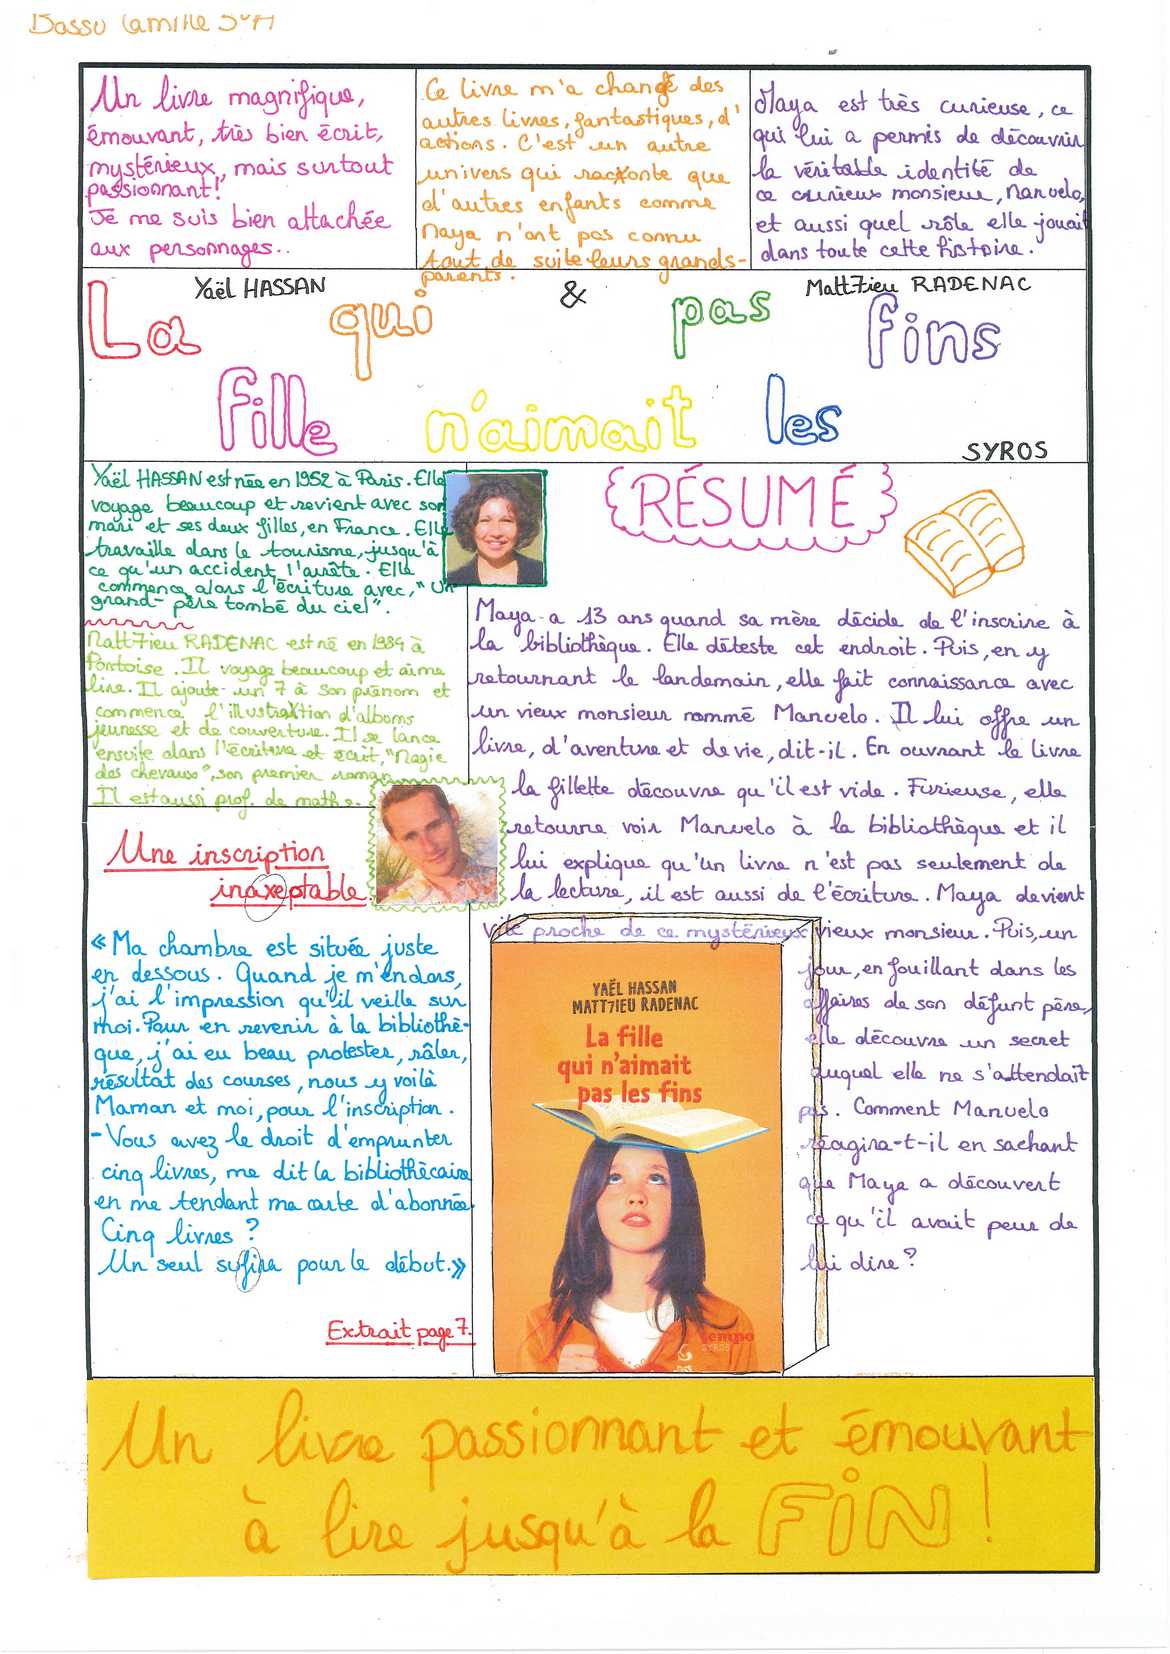 Camille 5°A
Un livre magnifique,
émouvant, très bien écrit,
mystérieux, mais surtout
passionnant!
Je me suis bien attachée
aux personnages..
Ce livre m'a changé des
autres livres, fantastiques, d'
actions. C'est un autre
univers qui raconte que
d'autres enfants comme
Maya n'ont pas connu
tout de suite leurs grands-
parents.
Maya est très curieuse, ce
qui lui a permis de découvrir
la véritable identité de
ce curieux monsieur, Manuelo,
et aussi quel rôle elle jouait
dans toute cette histoire.
Yaël HASSAN & Matt7ieu RADENAC
La fille qui n'aimait pas les fins
SYROS
Yaël HASSAN est née en 1952 à Paris. Elle
voyage beaucoup et revient avec son
mari et ses deux filles, en France. Elle
travaille dans le tourisme, jusqu'à
ce qu'un accident l'arrête. Elle
commence alors l'écriture avec, "Un
grand-père tombé du ciel".
Matt7ieu RADENAC est né en 1984 à
Pontoise. Il voyage beaucoup et aime
lire. Il ajoute un 7 à son prénom et
commence l'illustration d'albums
jeunesse et de couverture. Il se lance
ensuite dans l'écriture et écrit, "Magie
des chevaux", son premier roman
Il est aussi prof. de maths.
RÉSUMÉ
Maya a 13 ans quand sa mère décide de l'inscrire à
la bibliothèque. Elle déteste cet endroit. Puis, en y
retournant le landemain, elle fait connaissance avec
un vieux monsieur nommé Manuelo. Il lui offre un
livre, d'aventure et de vie, dit-il. En ouvrant le livre
la fillette découvre qu'il est vide. Furieuse, elle
retourne voir Manuelo à la bibliothèque et il
lui explique qu'un livre n'est pas seulement de
la lecture, il est aussi de l'écriture. Maya devient
vite proche de ce mystérieux vieux monsieur. Puis, un
jour, en fouillant dans les
affaires de son défunt père,
elle découvre un secret
auquel elle ne s'attendait
pas. Comment Manuelo
réagira-t-il en sachant
que Maya a découvert
ce qu'il avait peur de
lui dire?
Une inscription
inaxeptable
«Ma chambre est située juste
en dessous. Quand je m'endors,
j'ai l'impression qu'il veille sur
moi. Pour en revenir à la bibliothè-
que, j'ai eu beau protester, râler,
résultat des courses, nous y voilà
Maman et moi, pour l'inscription.
-Vous avez le droit d'emprunter
cinq livres, me dit la bibliothécaire
en me tendant ma carte d'abonnée.
Cinq livres?
Un seul sufira pour le début.»
Extrait page 7.
YAËL HASSAN
MATT7IEU RADENAC
La fille
qui n'aimait
pas les fins
tempo
SYROS
Un livre passionnant et émouvant
à lire jusqu'à la FiN!